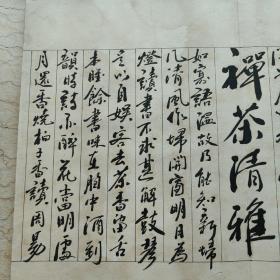 禪茶清雅
如寡語溫故乃能知新埽
几清風作埽開窗明月為
燈讀書不求甚解鼓琴
足以自娛客去茶香留舌
本睡餘書味在胸中酒到
韻時詩亦醉花當明處
月還香燒柏子香讀周易